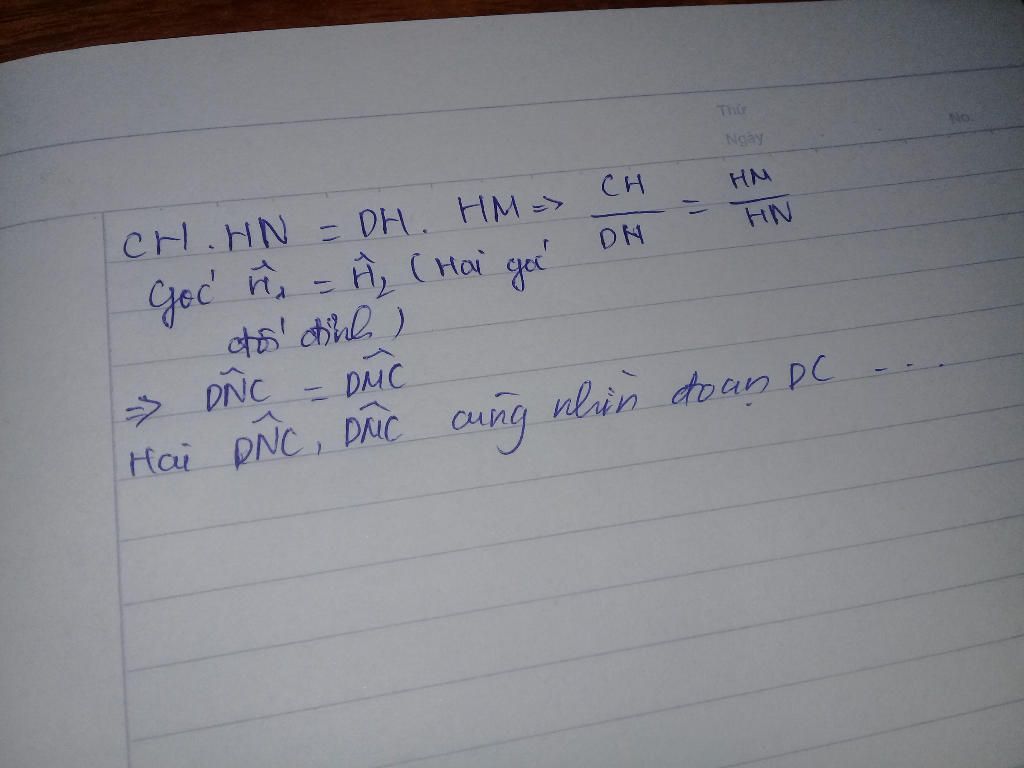 Thứ
Ngày
No.
CH . HN = DH . HM => CH/DH = HM/HN
Góc Ĥ₁ = Ĥ₂ (Hai góc
đối đỉnh)
=> DN̂C = DM̂C
Hai DN̂C, DM̂C cùng nhìn đoạn DC ....